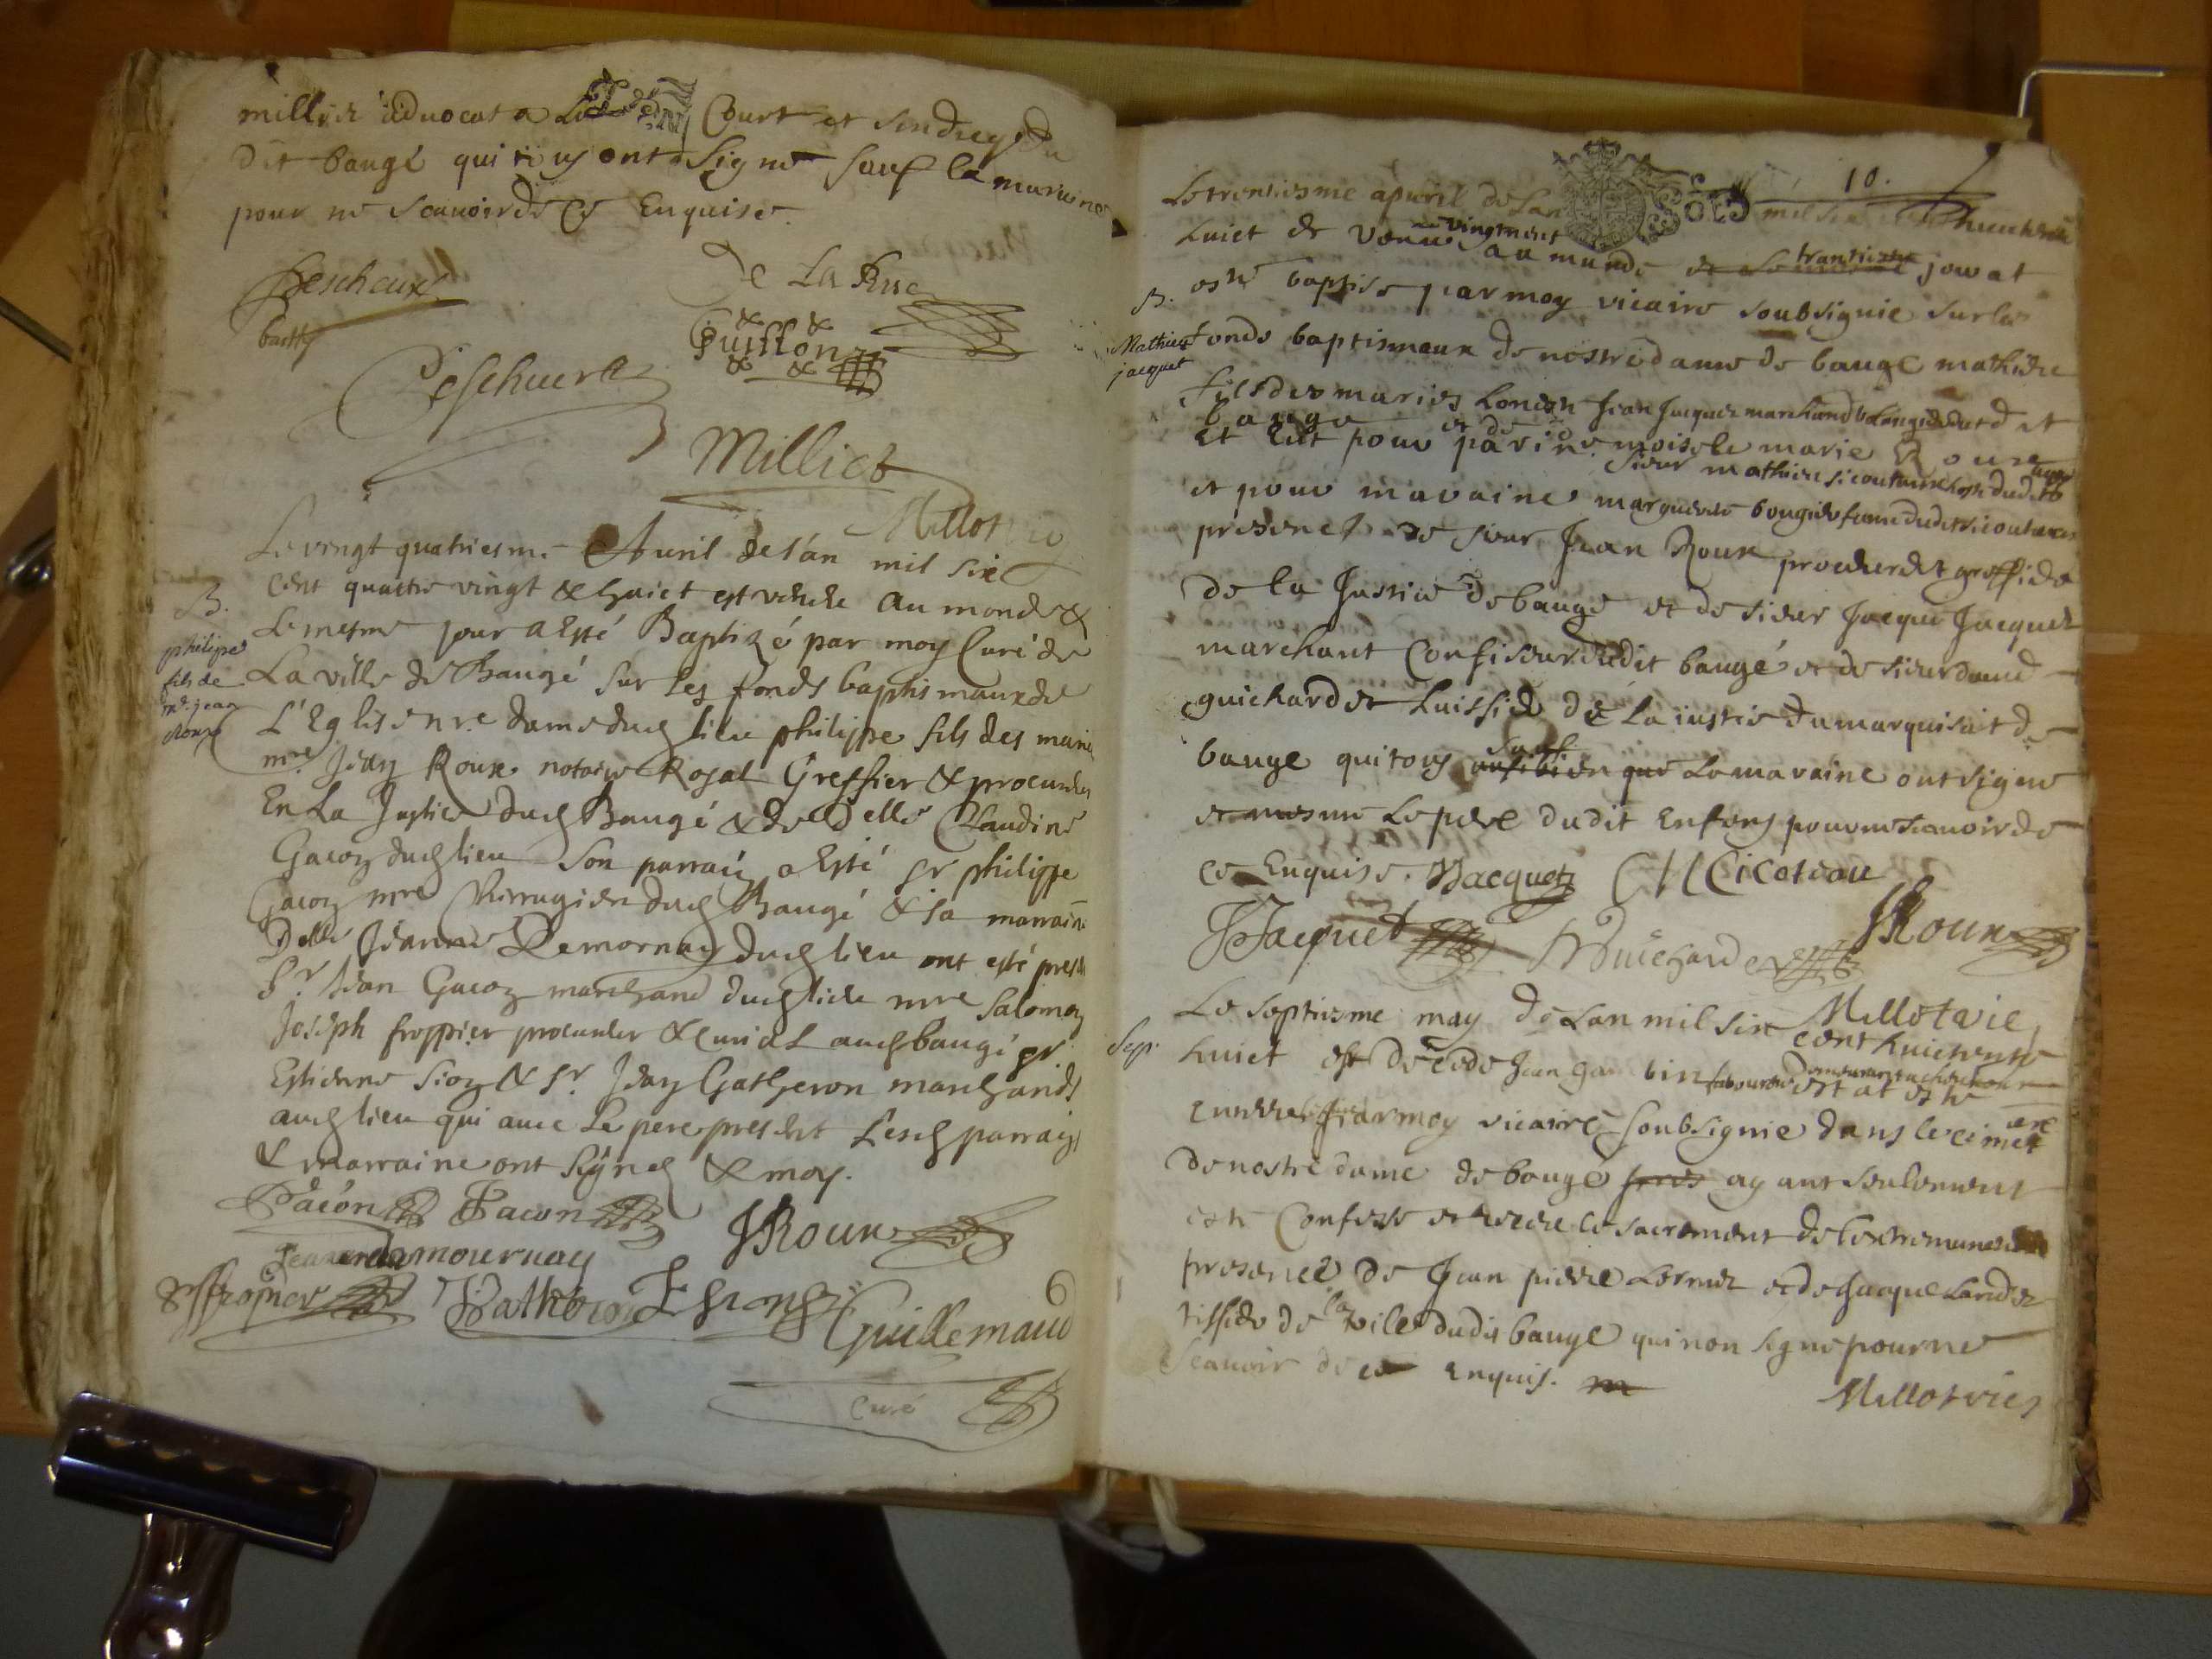 millier advocat a la Court et sindicq du
dit baugé qui tous ont signé sauf la maraine
pour ne scauoir de ce Enquise.
Descheux De La Rue
Guillon
Pescheura
Milliet
Millot vic
B.
philipe
fils de
me. jean
Roux
Le vingt quatriesme Auril de l'an mil six
cent quattre vingt & huict est venu au monde &
Le mesme jour a Esté Baptizé par moy Curé de
La ville de Baugé sur les fonds baptismaux de
L'Eglise nre dame dud lieu philippe fils des mariés
mre Jean Roux notaire Royal Greffier & procureur
En La Justice dud Baugé & de delle Claudine
Gacon dud lieu Son parrain a Esté sr philippe
Gacon mre Chirurgien dud Baugé & sa marraine
Delle Jeanne Demornay dud lieu ont esté presens
Sr. Jean Gacon marchand dud lieu mre Salomon
Joseph froppier procureur & curial aud baugé sr
Estienne Sion & sr. Jean Gatheron marchands
aud lieu qui auec Le pere present Lesd parrain
& marraine ont signez & moy.
Gacon Gacon JRoux
Jeanne demournay
Guillemaud
Curé
10.
Le trentiesme apuril de Lan mil six cent huictante
huict et venu au monde jour at
le vingtneuf trantiesme
B.
Mathieu
jacquet
esté baptise par moy vicaire soubsignie sur les
fonds baptismaux de nostre dame de bauge mathieu
fils des maries honeste Jean Jacquet marchand dudt
bauge et de demoiselle marie Roux
Et Eut pour parin sieur mathieu dudit bauge
et pour maraine marguerite femme dudit
presence de sieur Jean Roux procureur et greffier
de la Justice de baugé et de sieur Jacque Jacquet
marchant Confiseur dudit baugé et de sieur
guichard et huissier de La iustice du marquisat de
bauge qui tous sauf ausi bien que La maraine ont signe
et mesme Le pere dudit Enfans pour ne scauoir de
ce Enquise. Jacquet
JJacquet Guichard JRoux
Millot vic
Sep.
Le septiesme may de Lan mil six cent huictente
huict est decede Jean laboureur et at esté
Enterre par moy vicaire soubsignie dans le cimetiere
de nostre dame de baugé ayant seulement
esté Confesse et receu le sacrement de lextremunction
presence de Jean pierre et de Jacque
tissier de la ville dudit bauge qui non signe pour ne
scauoir de ce Enquis.
Millot vic